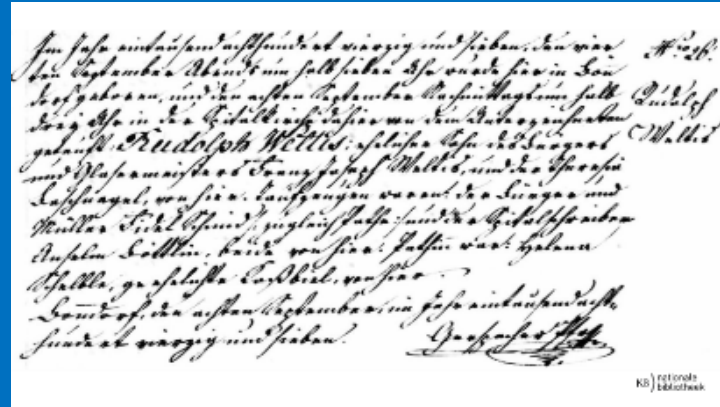 Im Jahr eintausend achthundert vierzig und sieben, den vier
ten September Abends um halb sieben Uhr wurde hier in Bon
dorf geboren, und den achten September Nachmittags um halb
drei Uhr in der Spitalkirche dahier von dem Unterzeichneten
getauft: Rudolph Weltis; ehelicher Sohn des Bürgers
und Glasermeisters Franz Joseph Weltis, und der Theresia
von hier. Taufzeugen waren: der Bürger und
Müller Fidel Schmid, zugleich Pathe; und der Spitalschreiber
Anselm beide von hier. Pathin war: Helena
Schelble, geehelichte von hier.
Bonndorf, den achten September, im Jahr eintausend acht
hundert vierzig und sieben.
Rudolph
Weltis
KB nationale
bibliotheek